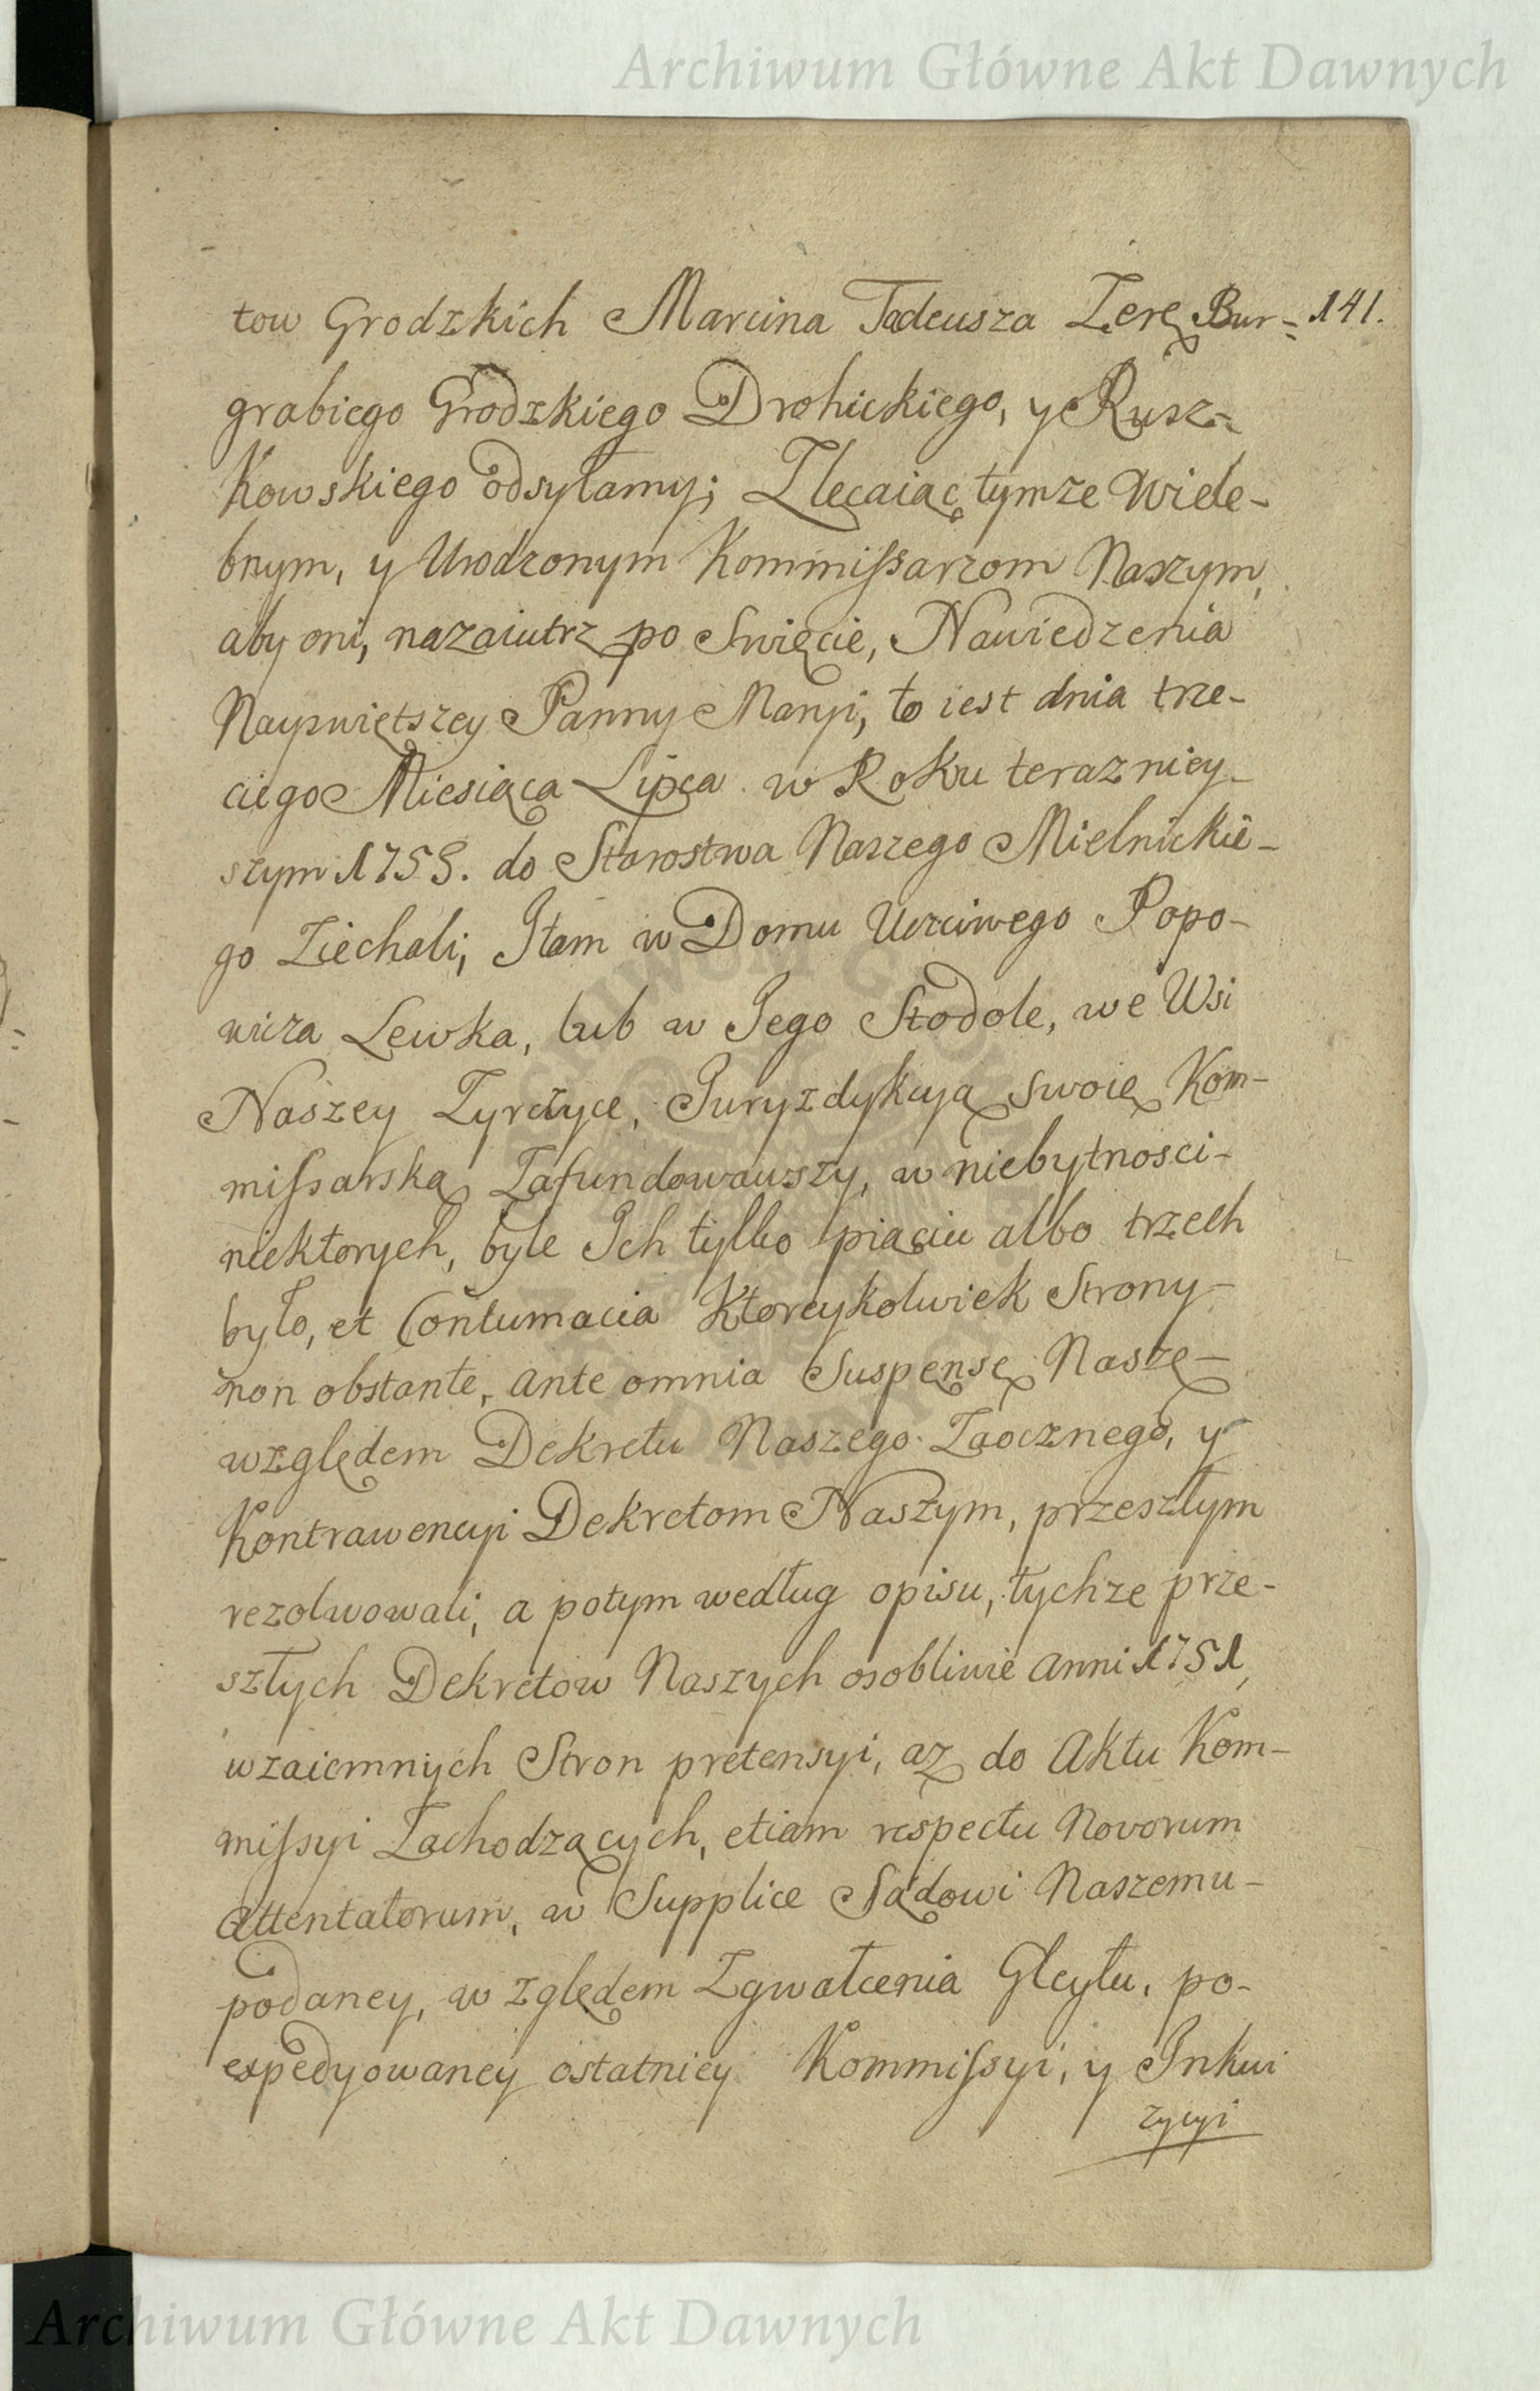 Archiwum Główne Akt Dawnych
tow Grodzkich Marcina Tadeusza Zerę Bur= 141.
grabiego Grodzkiego Drohickiego, y Rusz=
kowskiego odsyłamy; Zlecaiąc tymze Wiele-
bnym, y Urodzonym Kommissarzom Naszym,
aby oni, nazaiutrz po Swięcie, Nawiedzenia
Nayswiętszey Panny Maryi, to iest dnia trze-
ciego Miesiąca Lipca w Roku terazniey-
szym 1755. do Starostwa Naszego Mielnickie-
go Ziechali, Itam w Domu Uczciwego Popo-
wicza Lewka, lub w Jego Stodole, we Wsi
Naszey Zyrczyce, Juryzdykcyą swoię Kom-
missarską Zafundowawszy, w niebytnosci-
niektorych, byle Ich tylko piąciu albo trzech
było, et Contumacia Ktoreykolwiek Strony-
non obstante, ante omnia Suspensę Naszę-
względem Dekretu Naszego Zaocznego, y
Kontrawencyi Dekretom Naszym, przeszłym
rezolwowali, a potym według opisu, tychze prze-
szłych Dekretow Naszych osobliwie anni 1751,
wzaiemnych Stron pretensyi, az do Aktu Kom-
missyi Zachodzących, etiam respectu Novorum
Attentatorum, w Supplice Sądowi Naszemu-
podaney, w zględem Zgwałcenia Gleytu, po-
expedyowaney ostatniey Kommissyi, y Inkwi
zycyi
Archiwum Główne Akt Dawnych